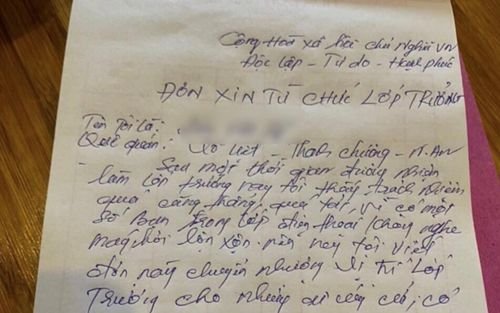 Cộng Hoà xã hội chủ nghĩa VN
Độc lập - Tự do - Hạnh phúc
ĐƠN XIN TỪ CHỨC LỚP TRƯỞNG
Tên Tôi là:
Quê quán: Xô Viết - Thanh chương - N.AN
Sau một thời gian đương nhiệm
làm lớp trưởng nay tôi thấy trách nhiệm
quá căng thẳng, quá tải, vì có một
số bạn trong lớp điện thoại không nghe
máy hỏi lộn xộn. nên nay tôi viết
đơn này chuyển nhượng vị trí Lớp
Trưởng cho những ai có